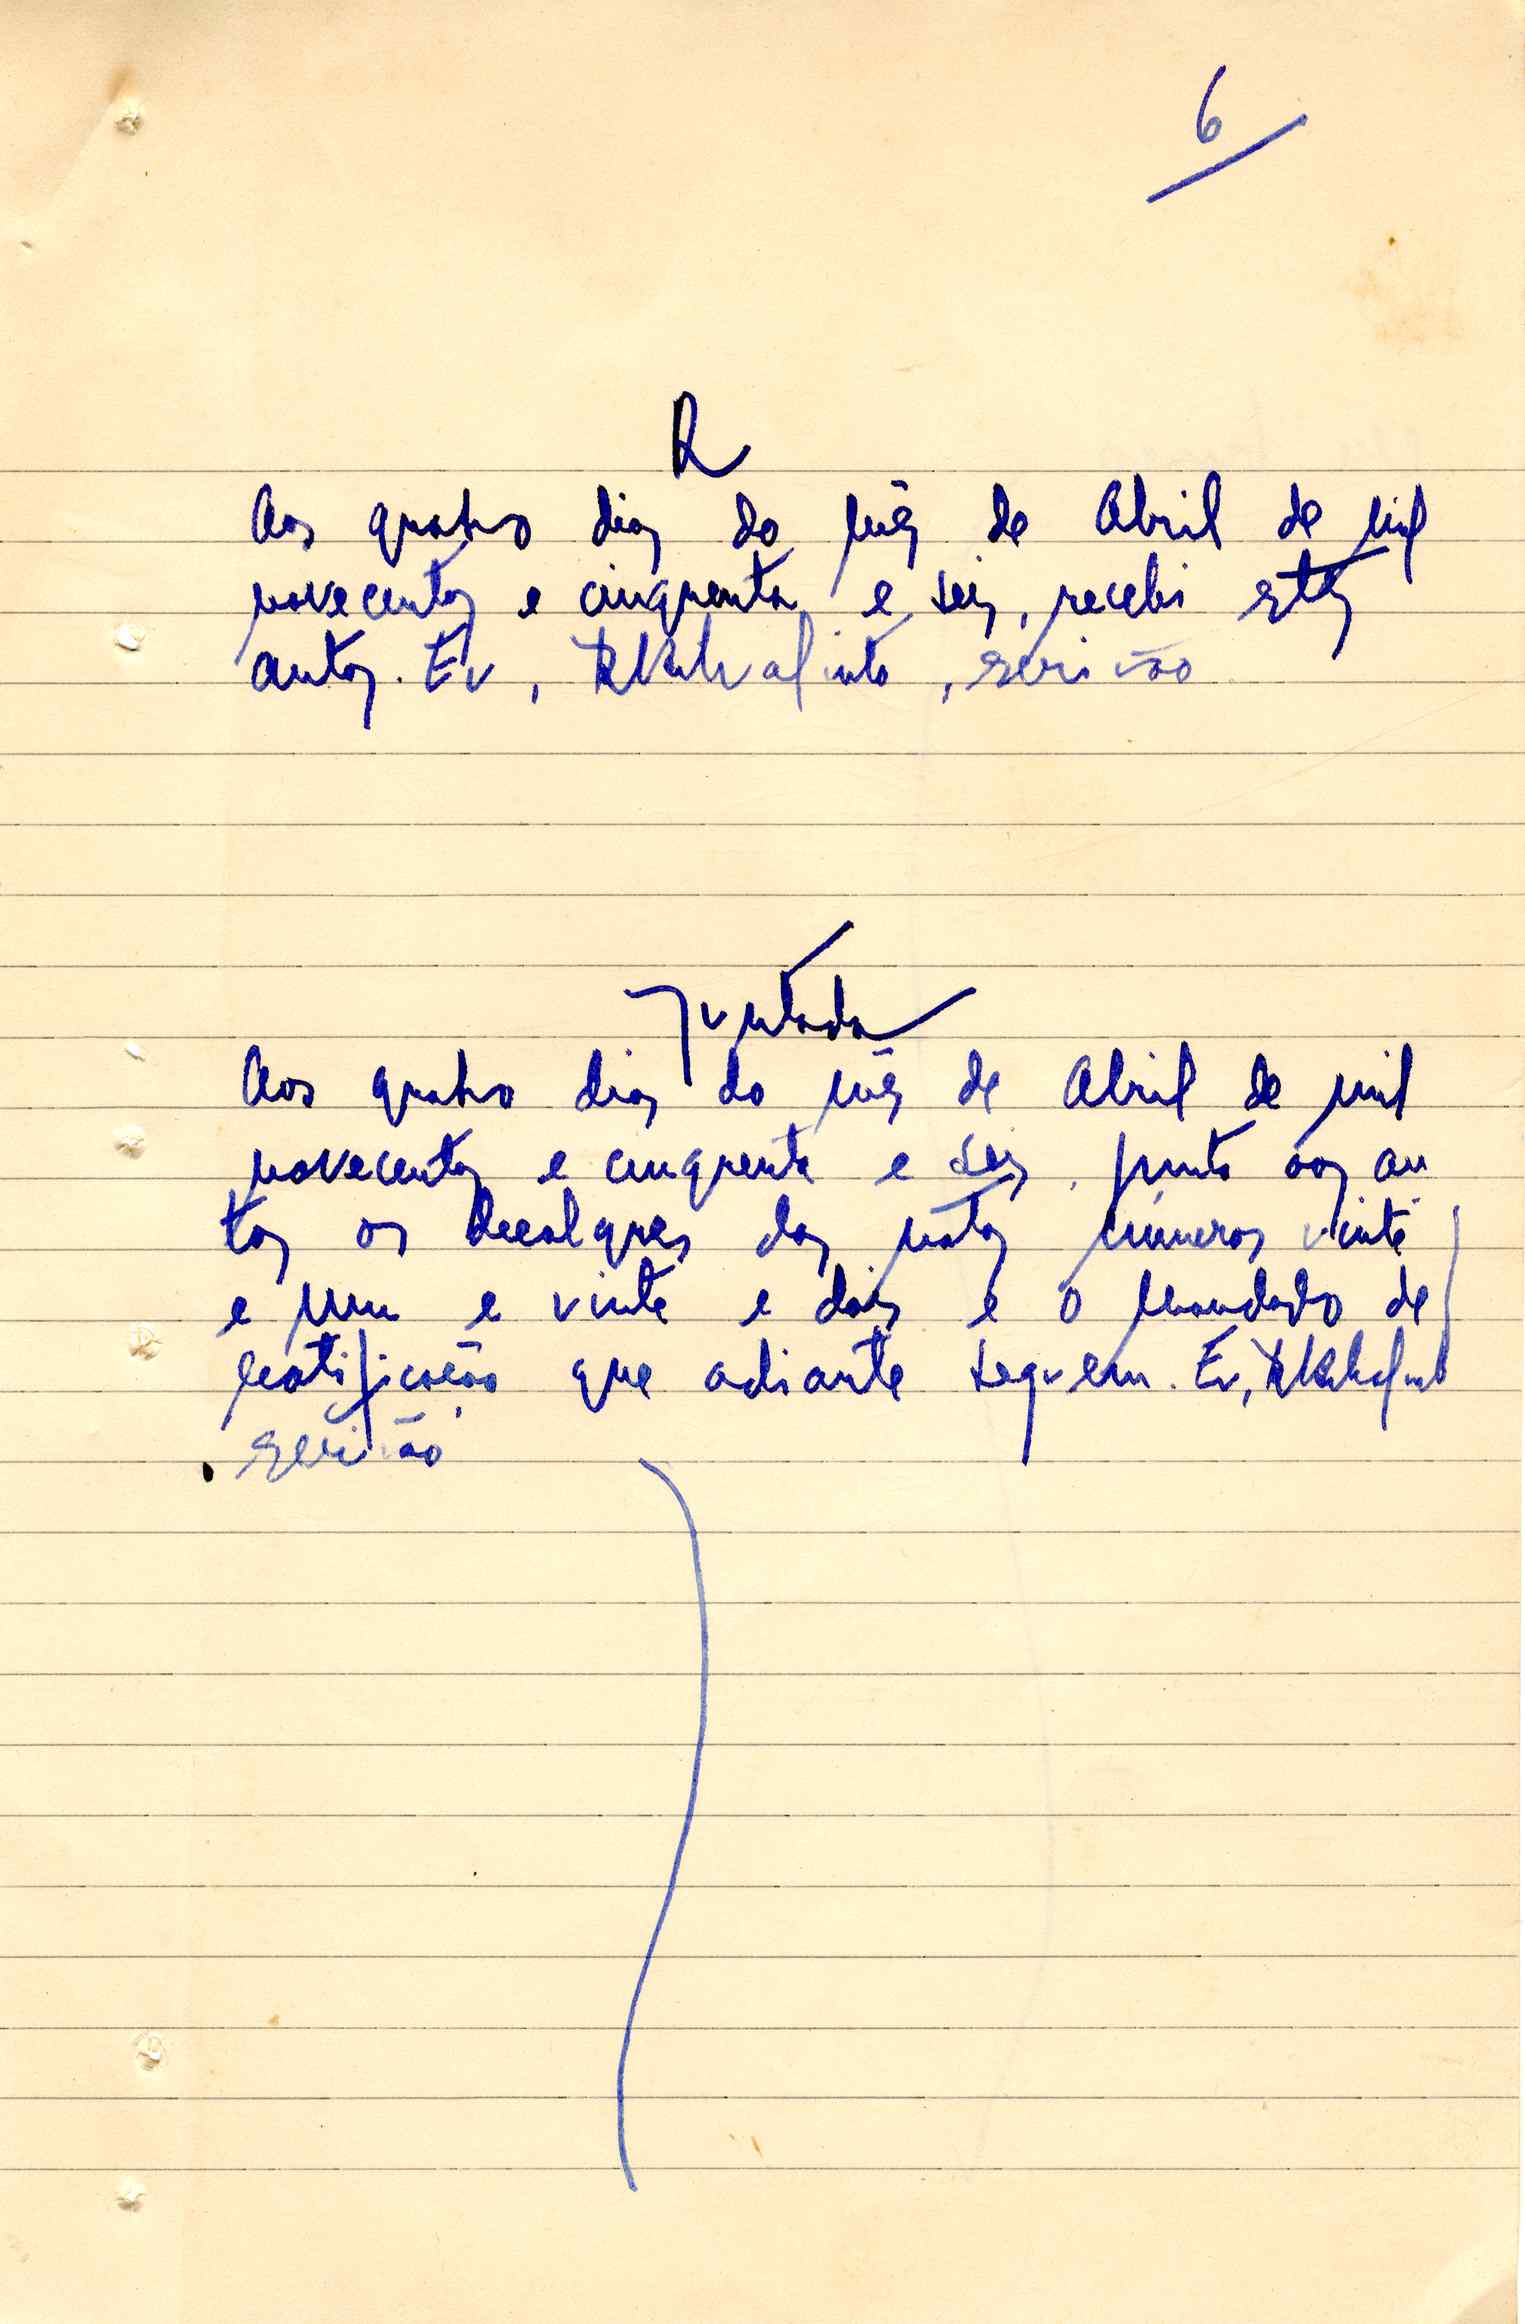 6
R
Aos quatro dias do mês de Abril de mil
novecentos e cinquenta e seis, recebi estes
autos. Eu, escrivão
Juntada
Aos quatro dias do mês de Abril de mil
novecentos e cinquenta e seis, junto aos au
tos os decalques das notas números vinte
e um e vinte e dois e o mandado de
notificação que adiante seguem. Eu,
escrivão